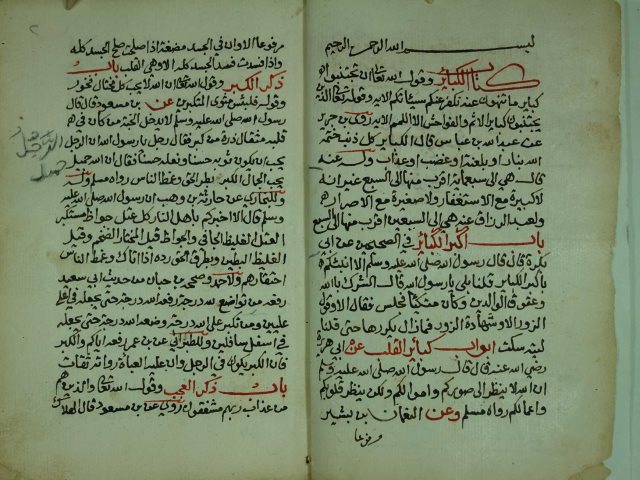 بسم الله الرحمن الرحيم
كتاب الكبائر وقول الله تعالى ان تجتنبوا
كباير ما تنهون عنه نكفر عنكم سيئاتكم الايه وقوله تعالى الذين
يجتنبون كباير الاثم والفواحش الا اللمم الايه روى بن جرير
عن عبد الله بن عباس قال الكباير كل ذنب ختمه
الله بنار او لعنة او غضب او عذاب وله عنه
قال هي الى سبعمائة اقرب منها الى السبع غير انه
لا كبيرة مع الاستغفار ولا صغيرة مع الاصرار
ولعبد الرزاق عنه هي الى سبعين اقرب منها الى السبع
باب اكبر الكبائر في الصحيحين عن ابي
بكرة قال قال رسول الله صلى الله عليه وسلم الا انبئكم
باكبر الكباير قلنا بلى يا رسول الله قال الشرك بالله
وعقوق الوالدين وكان متكئا فجلس فقال الا وقول
الزور الا وشهادة الزور فما زال يكررها حتى قلنا
ليته سكت ابواب كبائر القلب عن ابي هريرة
رضي الله عنه قال قال رسول الله صلى الله عليه وسلم
ان الله لا ينظر الى صوركم واموالكم ولكن ينظر قلوبكم
واعمالكم رواه مسلم وعن النعمان بن بشير
مرفوعا
مرفوعا الا وان في الجسد مضغة اذا صلحت صلح الجسد كله
واذا فسدت فسد الجسد كله الا وهي القلب باب
ذكر الكبر وقول الله تعالى ان الله لا يحب كل مختال فخور
وقوله فلبئس مثوى المتكبرين عن بن مسعود قال قال
رسول الله صلى الله عليه وسلم لا يدخل الجنة من كان في
قلبه مثقال ذرة من كبر فقال رجل يا رسول الله ان الرجل
يحب ان يكون ثوبه حسنا ونعله حسنا فقال ان الله جميل
يحب الجمال الكبر بطر الحق وغمط الناس رواه مسلم
وللبخاري عن حارثة بن وهب ان رسول الله صلى الله عليه
وسلم قال الا اخبركم باهل النار كل عتل جواظ مستكبر
العتل الغليظ الجافي والجواظ قيل المختال الضخم وقيل
الغليظ البطين وبطر الحق رده اذا اتاك وغمط الناس
احتقارهم ولاحمد وصححه بن حبان من حديث ابي سعيد
رفعه من تواضع لله درجة رفعه الله درجة حتى يجعله في اعلى
عليين ومن تكبر على الله درجة وضعه الله درجة حتى يجعله
في اسفل سافلين وللطبراني عن بن عمر رفعه اياكم والكبر
فان الكبر يكون في الرجل وان عليه العباة رواته ثقات
باب ذكر العجب وقول الله تعالى والذين هم
من عذاب ربهم مشفقون روي عن بن مسعود قال الهلاك